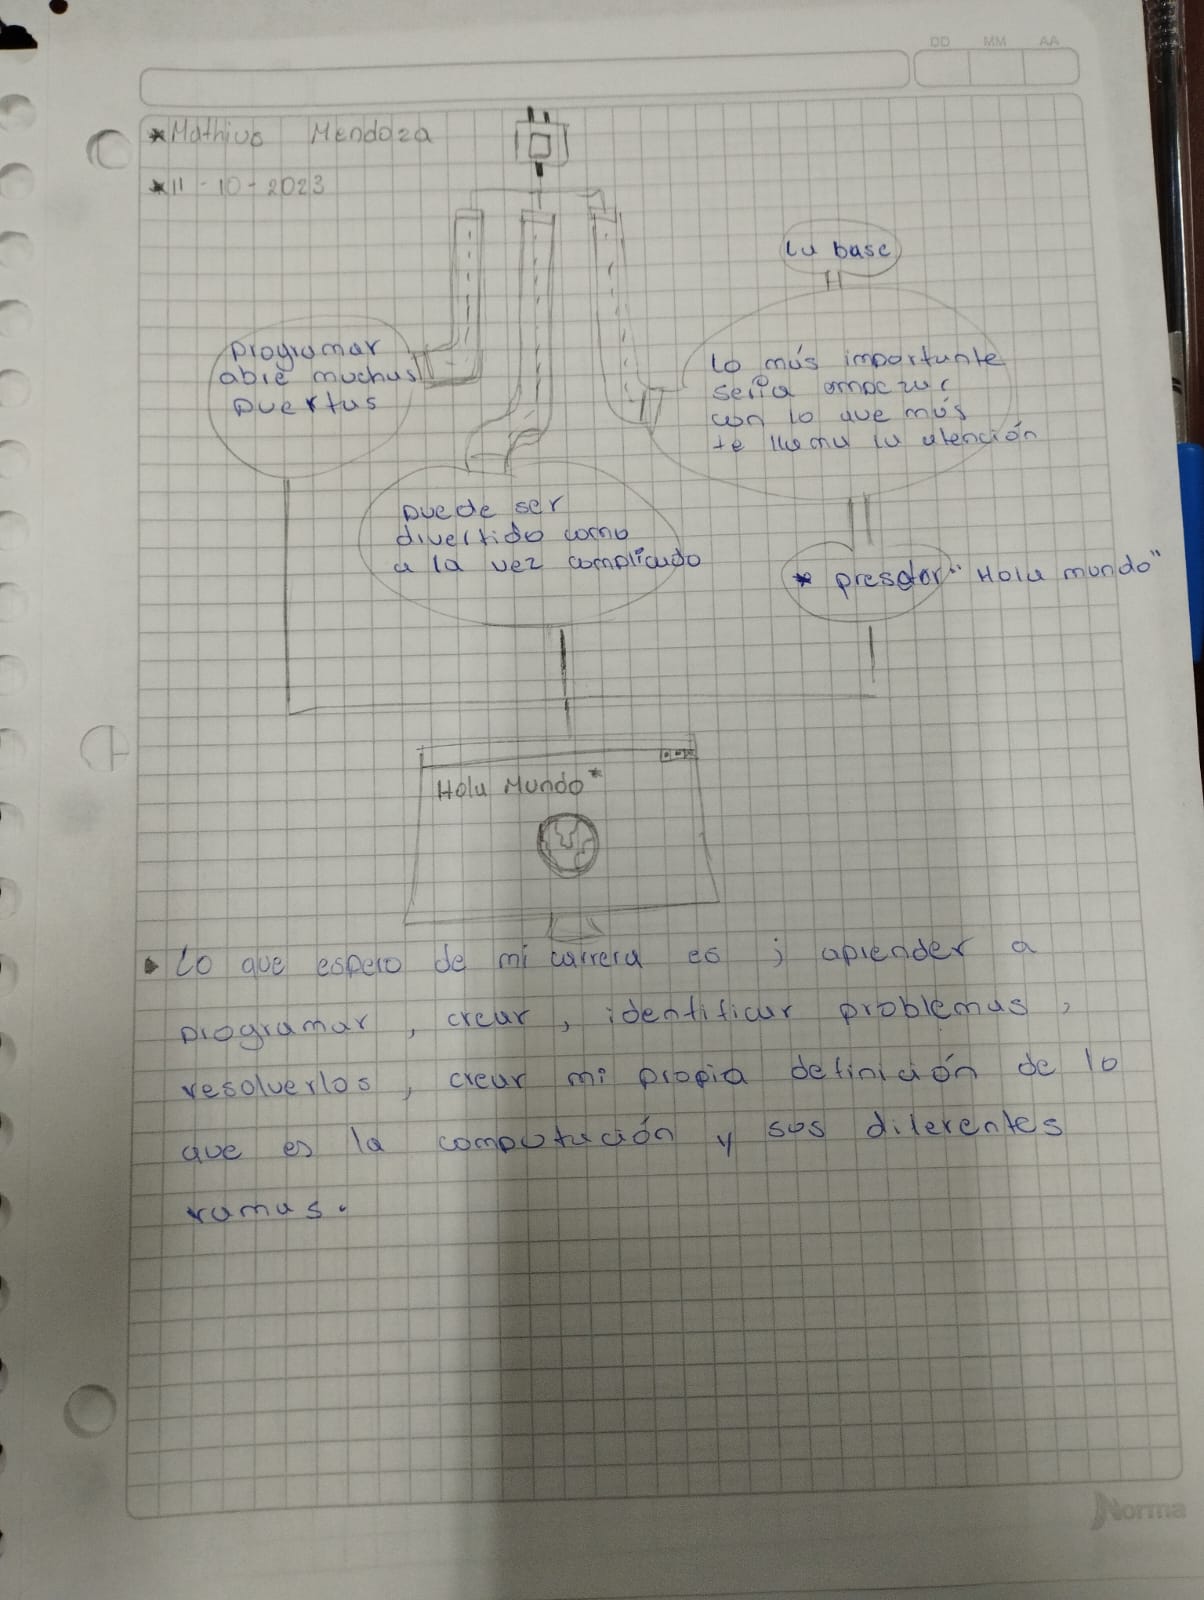 DD MM AA
*Mathius Mendoza
*11-10-2023
La base
Programar
abre muchas
puertas
Lo más importante
sería empezar
con lo que más
te llama la atención
Puede ser
divertido como
a la vez complicado
* "Hola mundo"
Hola Mundo*
• Lo que espero de mi carrera es ; aprender a
programar, crear, identificar problemas,
resolverlos, crear mi propia definición de lo
que es la computación y sus diferentes
ramas.
Norma